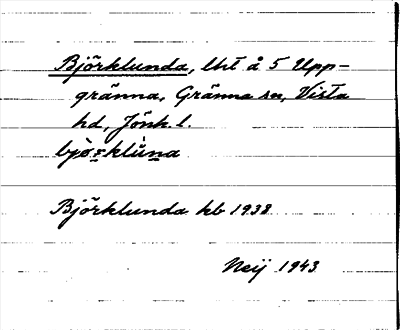 Björklunda, lht å 5 Upp-
gränna, Gränna sn, Vista
hd, Jönk. l.
bjò̀rklùna
Björklunda kb 1938
Neij 1943